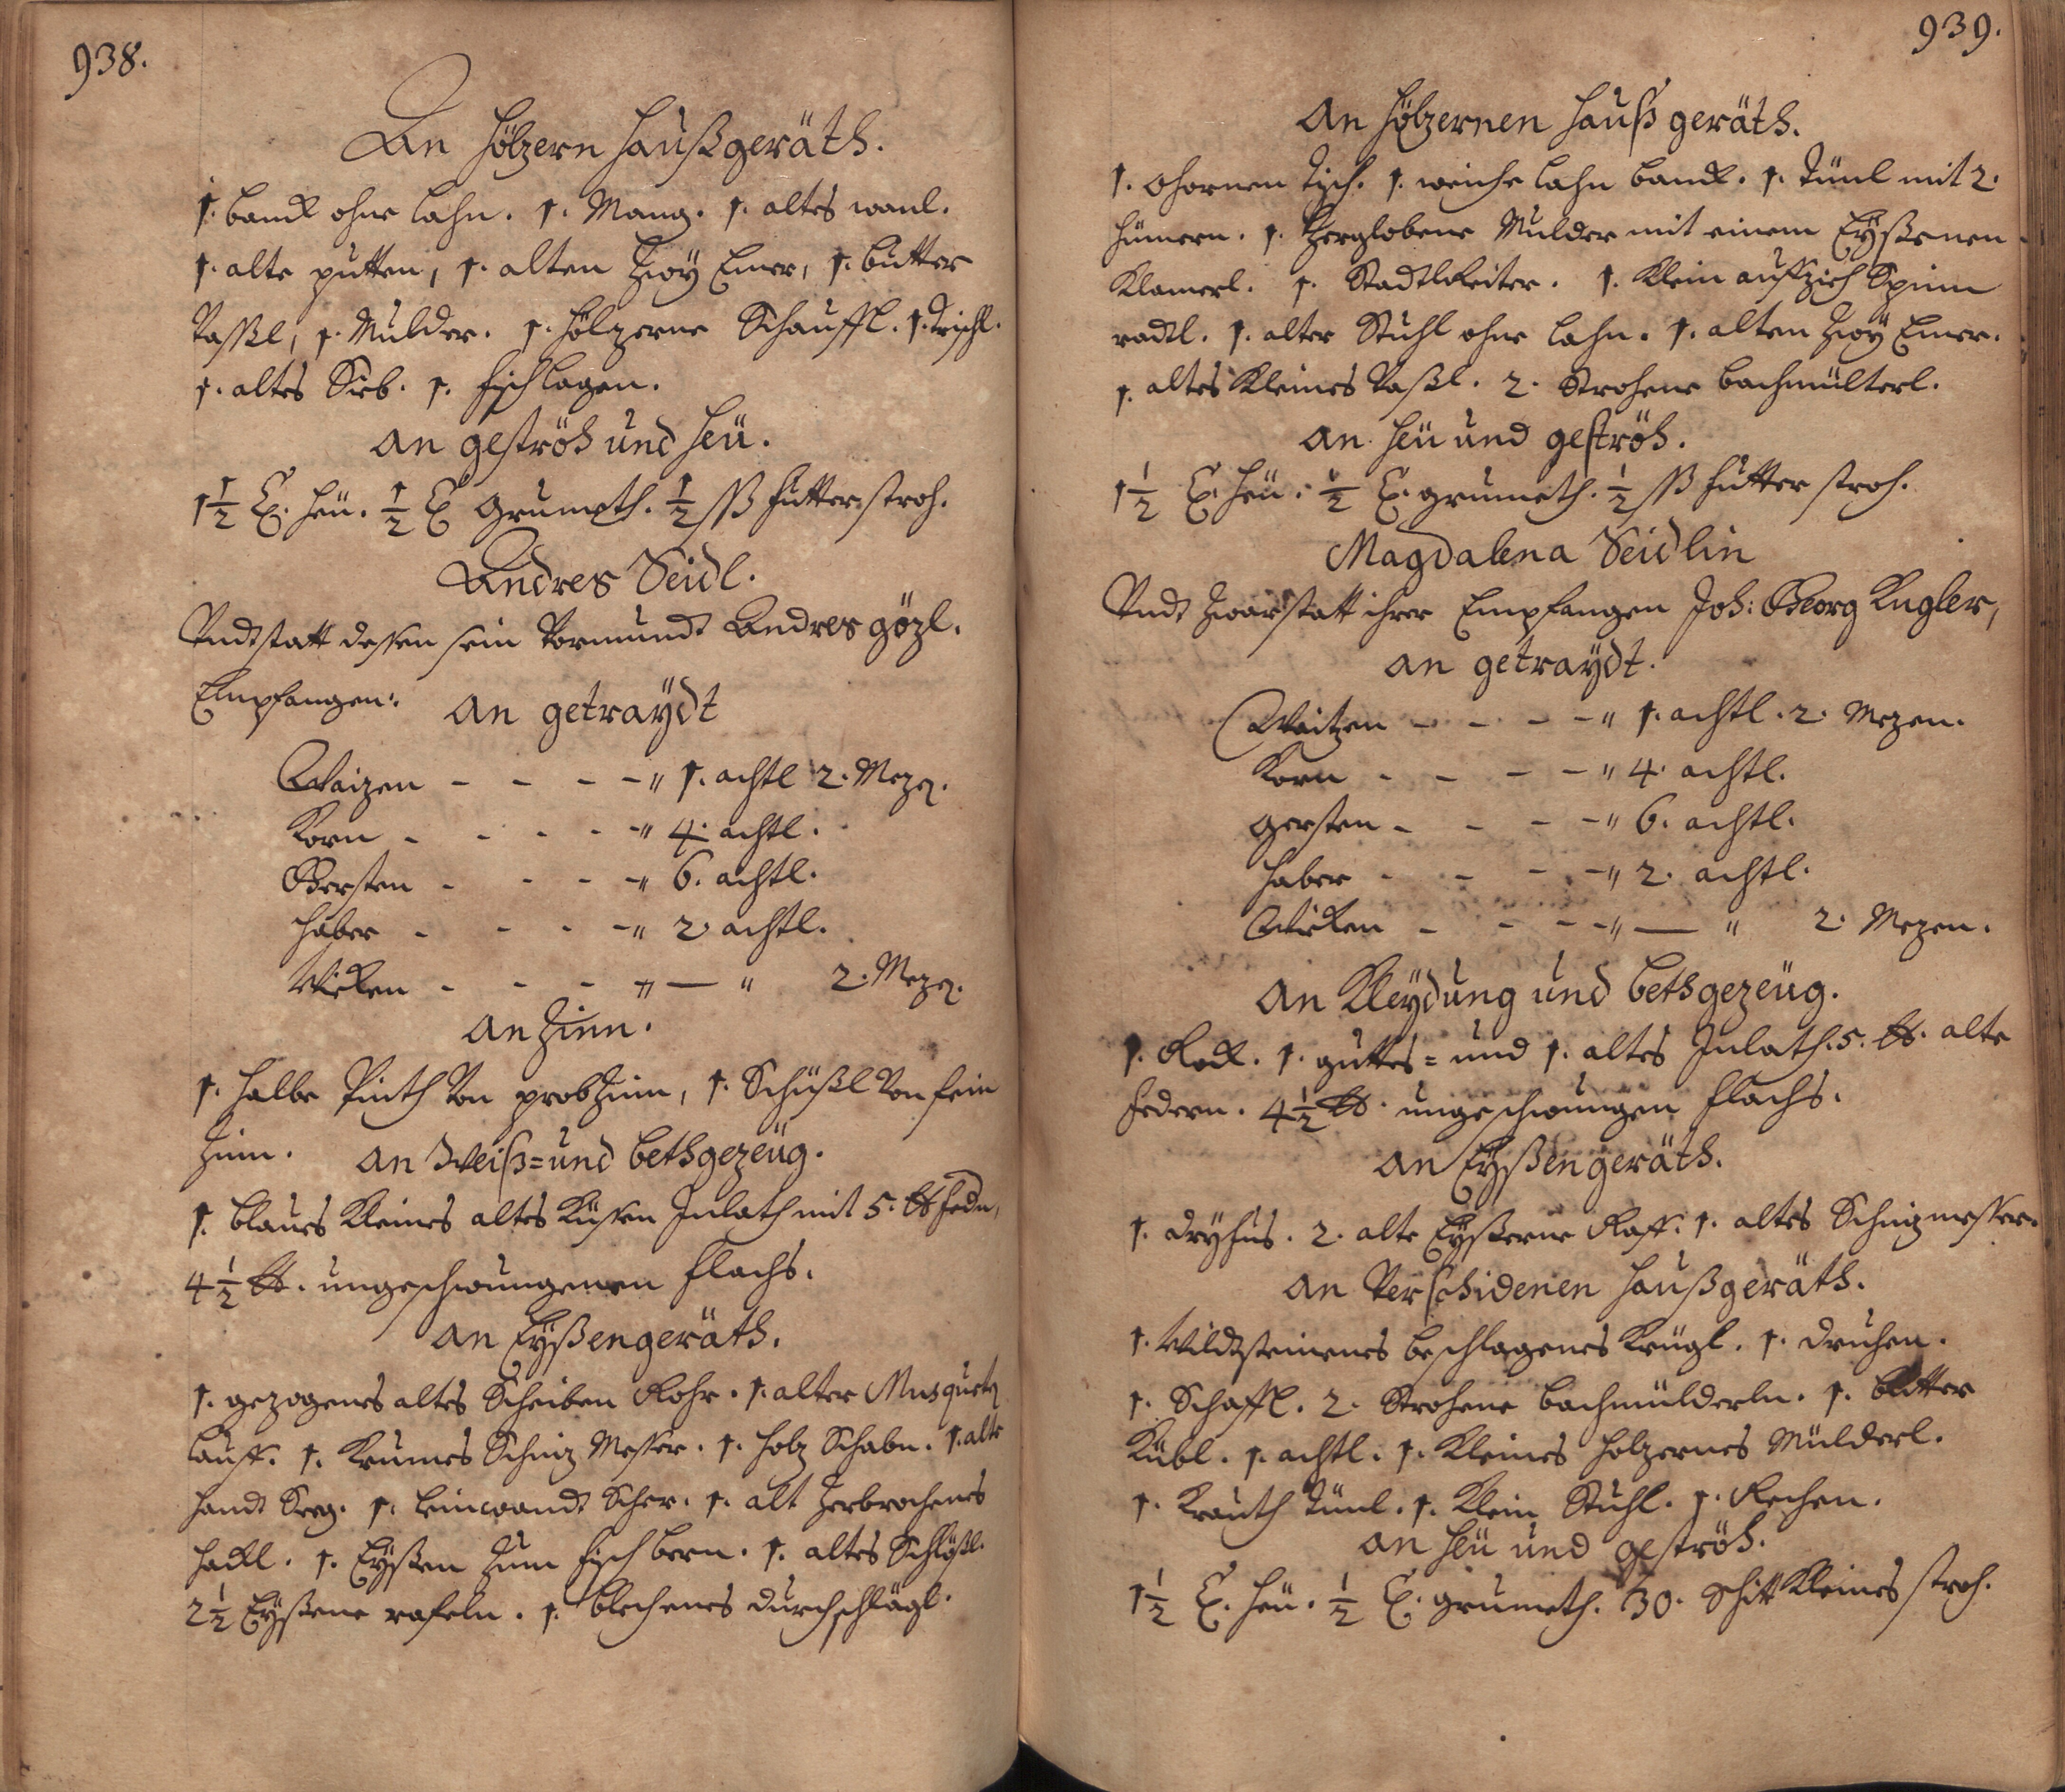 938.
An Hölzern Haußgeräth.
1. banck ohne lahn. 1. Mang. 1. altes wanl.
1. alte putten, 1. alten Zwy Emer, 1. butter
Vaßl, 1. Mulder. 1. hölzerne Schauffl. 1. trichl.
1. altes Sieb. 1. fischlagen.
An geströh und heü.
1 1/2 heü. 1/2 grumeth. 1/2 ßß futterstroh.
Andres Seidl.
Undt statt dessen sein Vormundt Andres gözl.
Empfangen: An getraydt
Waizen - - - -" 1. achtl 2. Mezen.
Korn - - - -" 4. achtl.
Gersten - - - -" 6. achtl.
Haber - - - -" 2 achtl.
Wicken - - - " — " 2. Mezen.
An Zinn.
1. halbe Pinth Von probzinn, 1. Schüßl Von fein
Zinn. An Weiß= und bethgezeüg.
1. blaues kleines altes Küßen Inlath mit 5. lb fedn,
4 1/2 lb. ungeschwungenen flachs.
An Eyßengeräth.
1. gezogenes altes Scheiben Rohr. 1. alter Musqueten
lauff. 1. krumes Schniz Messer. 1. holz Schabn. 1. alte
handt Seeg. 1. leinwandt Scher. 1. alt zerbrochenes
hackl. 1. Eyßen zum fisch bern. 1. altes Schlößl.
2 1/2 Eyßene rafeln. 1. blechenes durchschlägl.
939.
An Hölzernen Hauß geräth.
1. ahornen Tisch. 1. weiche lahn banck. 1. Tünl mit 2.
hümern. 1. Zerglobene Mulder mit einem Eyßenen
Klamerl. 1. StadtlReiter. 1. klein auffzich Spinn
radl. 1. alter Stuhl ohne lahn. 1. alten Zwy Emer.
1. altes kleines Vaßl. 2. Strohene bachmülterl.
An heü und geströh.
1 1/2 heü. 1/2 grumeth. 1/2 ßß futter stroh.
Magdalena Seidlin
Undt zwar statt ihrer Empfangen Joh: Georg Kugler,
An getraydt.
Waitzen - - - -" 1. achtl. 2. Mezen.
Korn - - - -" 4. achtl.
gersten - - - -" 6. achtl.
Haber - - - -" 2. achtl.
Wicken - - - -" — " 2. Mezen.
An Kleydung und bethgezeüg.
1. Rock. 1. guttes= und 1. altes Inlath. 5. lb. alte
federn. 4 1/2 lb. ungeschwungen flachs.
An Eyßengeräth.
1. dryfus. 2. alte Eyßerne Raff. 1. altes Schnizmesser.
An Verschidenen haußgeräth.
1. Wildtsteinenes beschlagenes Krügl. 1. druhen.
1. Schaffl. 2. Strohene bachmülderln. 1. butter
Kübl. 1. achtl. 1. kleines holzernes Mülderl.
1. Krauth Tünl. 1. klein Stuhl. 1. Rechen.
An heü und geströh.
1 1/2 heü. 1/2 grumeth. 30. Schitt kleines stroh.